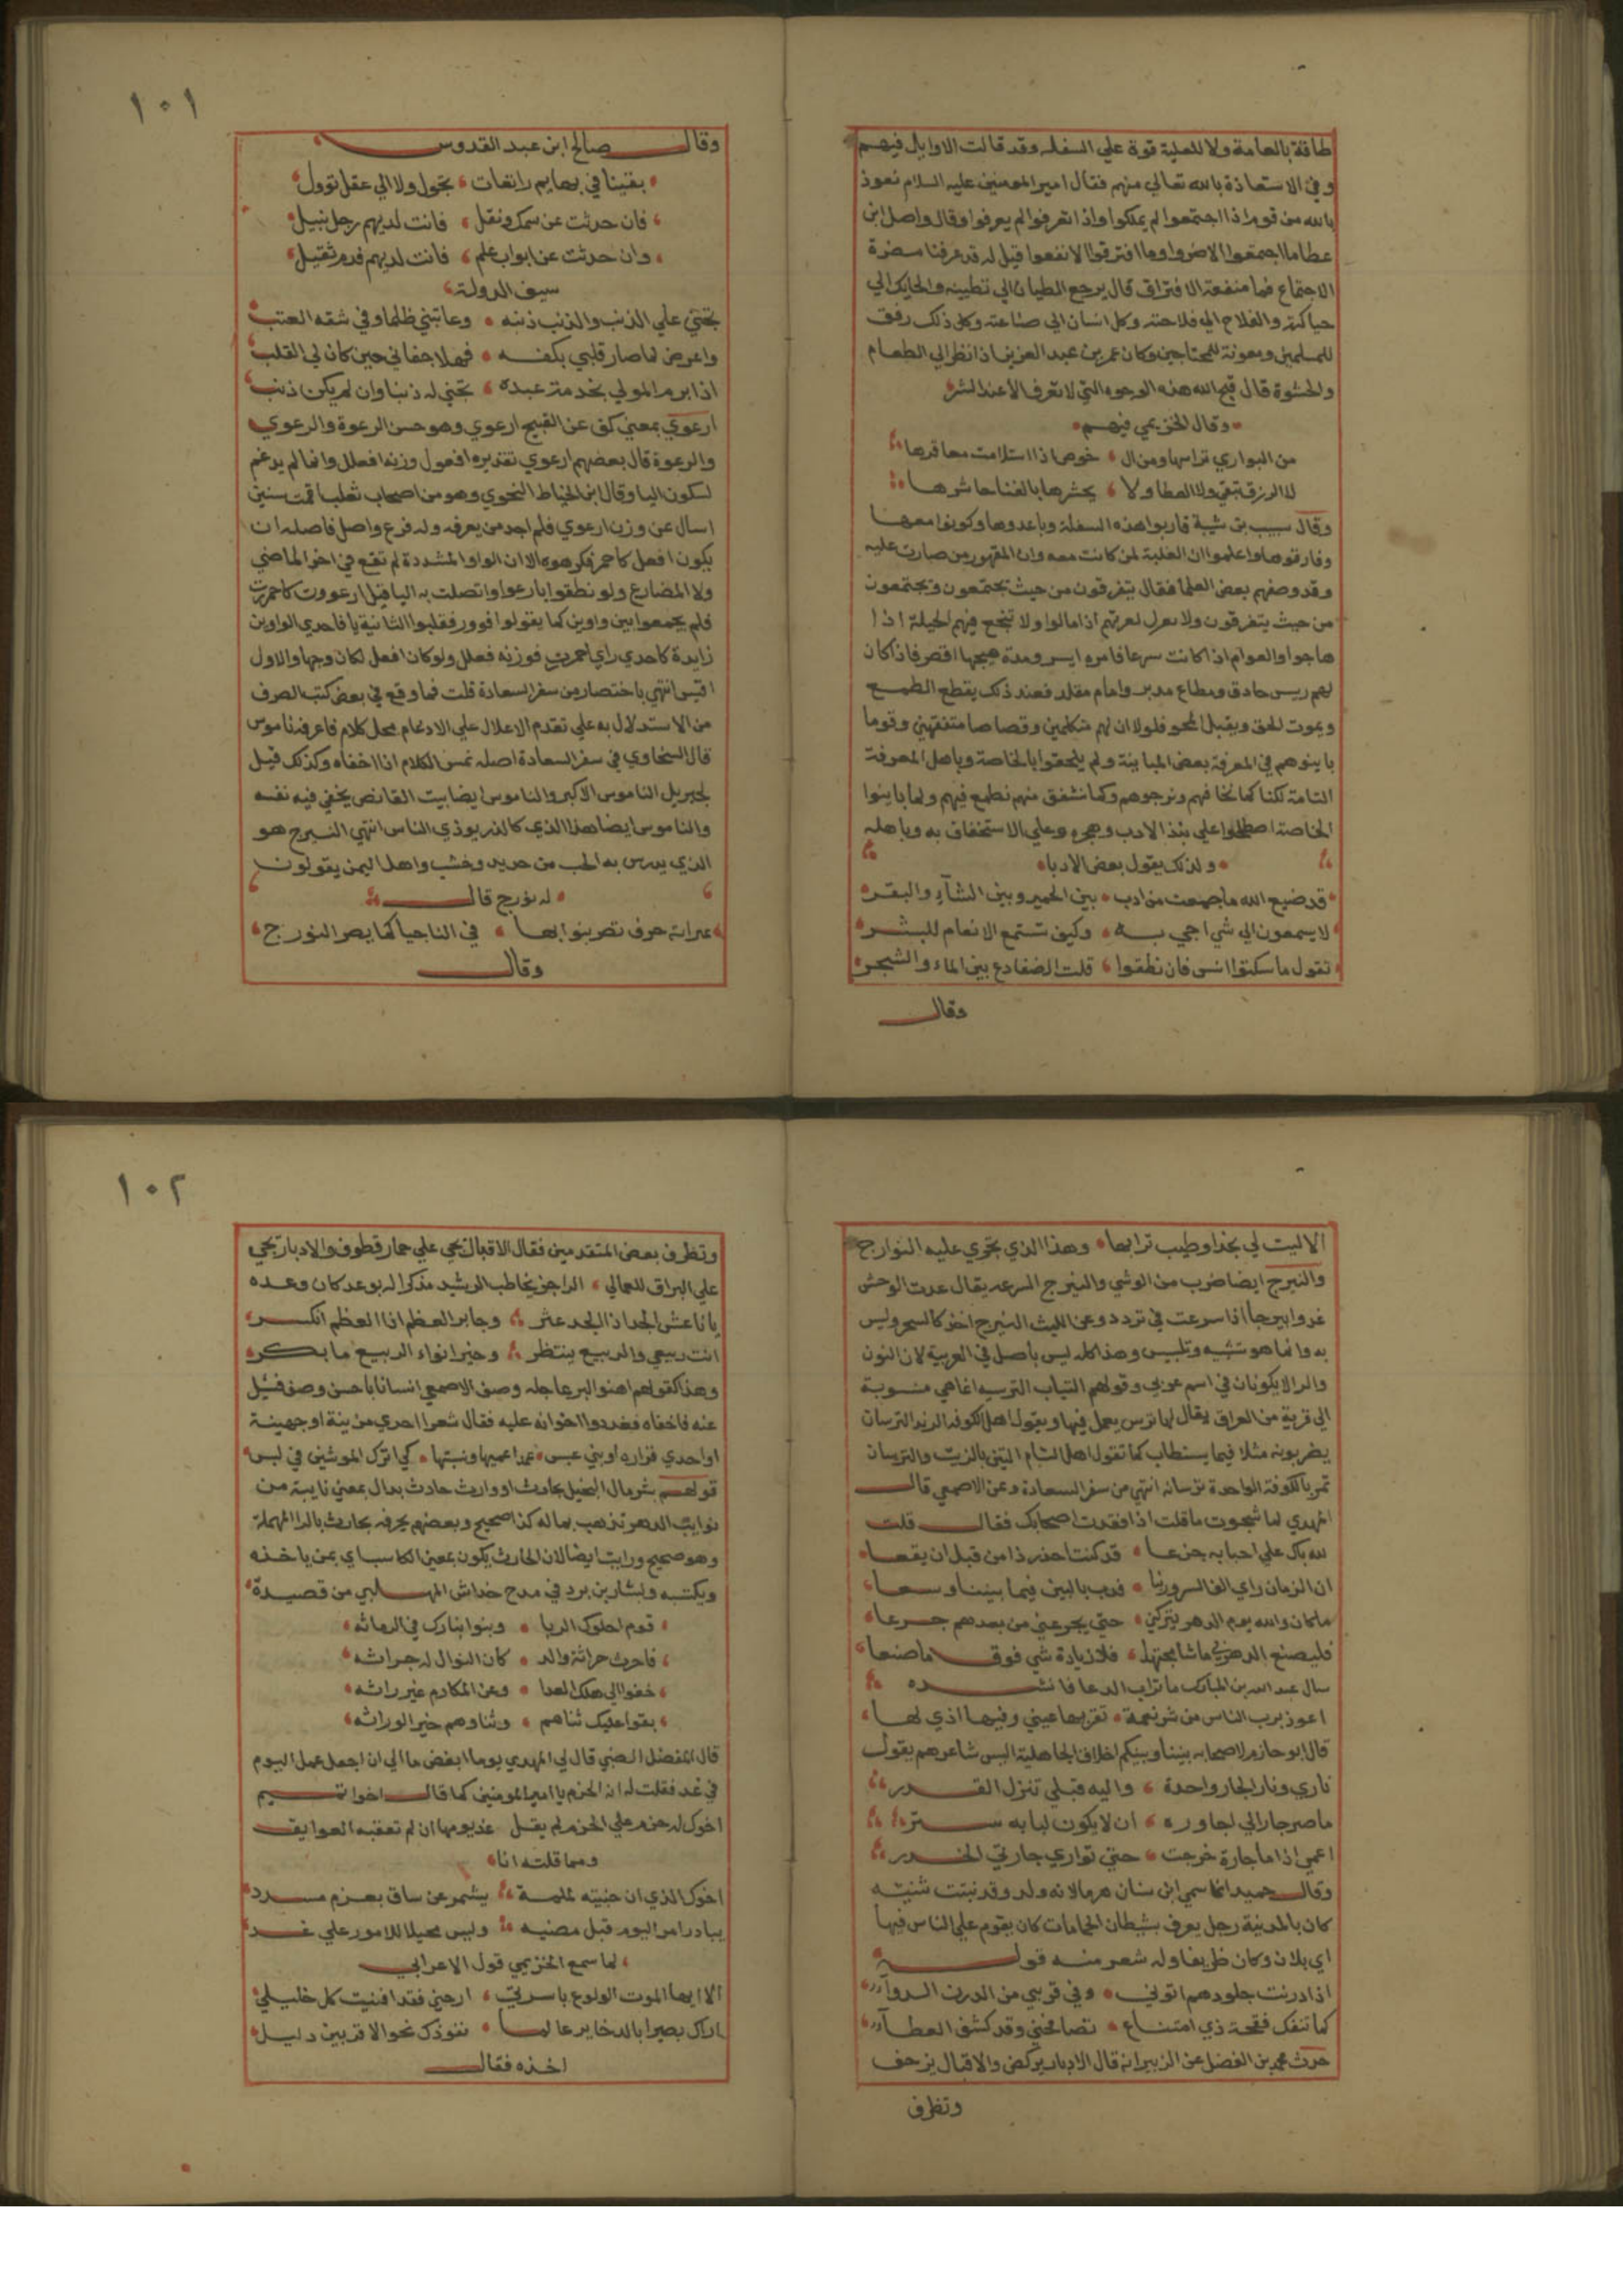 طاقة بالعامة ولا للعلية قوة علي السفله وقد قالت الاوايل فيهم
وفي الاستعاذة بالله تعالي منهم فقال امير المومنين عليه السلام نعوذ
بالله من قوم اذا اجتمعوا لم يملكوا واذا تفرقوا لم يعرفوا وقال واصل ابن
عطا ما اجمتعوا الا ضروا وما افترقوا الا نفعوا قيل له قد عرفنا مضرة
الاجتماع فما منفعة الافتراق قال يرجع الطيان الي تطيينه والحايك الي
حياكته والفلاح الي فلاحته وكل انسان الي صناعته وكل ذلك رفق
للمسلمين ومعونة للمحتاجين وكان عمر بن عبد العزيز اذا نظر الي الطعام
والحشوة قال قبح الله هذه الوجوه التي لا تعرف الا عند الشر
وقال الخزيمي فيهم
من البواري تراسها ومن ال خوص اذا استلامت مغافرها
لا الرزق تبغي ولا العطا ولا يحشرها بالفنا حاشرها
وقال سبيب بن شيبة قاربوا هذه السفلة وباعدوها وكونوا معها
وفارقوها واعلموا ان الغلبة لمن كانت معه وان المقهور من صارت عليه
وقد وصفهم بعض العلما فقال يتفرقون من حيث يجتمعون ويجتمعون
من حيث يتفرقون ولا اذا مالوا ولا تنجع فيهم الحيلة اذا
هاجوا والعوام اذا كانت ايسر ومدة هيجها اقصر فاذا كان
لهم ريس حاذق ومطاع مدبر وامام مقلد فعند ذلك يقطع الطمع
ويموت الحق ويقبل المحو فلولا ان لهم متكلمين وقصاصا متفقهين وقوما
باينوهم في المعرفة بعض المباينة ولم يلحقوا بالخاصة وباهل المعرفة
التامة لكنا كما نخافهم ونرجوهم وكما نشفق منهم نطمع فيهم ولما باينوا
الخاصة اصطلحوا علي نبذ الادب وهجره وعلي الاستخفاف به وباهله
ولذلك يقول بعض الادبا
قد ضيع الله ما جمعت من ادب بين الحمير وبين الشآء والبقر
لا يسمعون الي شي اجي به وكيف تستمع الانعام للبشر
تقول ما سكتوا انس فان نطقوا قلت الضفادع بين الماء والشجر
وقال
١٠١
وقال صالح ابن عبد القدوس
بقينا في بهايم راتعات تجول ولا الي عقل توول
فان حدثت عن سمك ونقل فانت لديهم رجل نبيل
وان حدثت عن ابواب علم فانت لديهم فدم ثقيل
سيف الدولة
تجني علي الذنب والذنب ذنبه وعاتبني ظلما وفي شقه العتب
واعرض لما صار قلبي بكفه فهلا جفاني حين كان لي القلب
اذا برم المولي بخدمة عبده تجني له ذنبا وان لم يكن ذنب
ارعوي بمعني كف عن القبيح ارعوي وهو حسن الرعوة والرعوي
والرعوة قال بعضهم ارعوي تقديره افعول وزنه افعلل وانما لم يدغم
لسكون اليا وقال ابن الخياط النحوي وهو من اصحاب ثعلب اقمت سنين
اسال عن وزن ارعوي فلم اجد من يعرفه وله فرع واصل فاصله ان
يكون افعل كاحمر فكرهوه الا ان الواو المشددة لم تقع في اخر الماضي
ولا المضارع ولو نطقوا بارعوا واتصلت به اليا قيل ارعووت كاحمررت
فلم يجمعوا بين واوين كما يقولوا قوور فقلبوا الثانية يا فاحدي الواوين
زايدة كاحدي راي احمررت فوزنه فعلل ولو كان افعل لكان وجها والاول
اقيس انتهي باختصار من سفر السعادة قلت فما وقع في بعض كتب الصرف
من الاستدلال به علي تقدم الاعلال علي الادغام محل كلام فاعرفه ناموس
قال السخاوي في سفر السعادة اصله نمس الكلام اذا اخفاه وكذلك قيل
لجبريل الناموس الاكبر والناموس ايضا بيت القانص يخفي فيه نفسه
والناموس ايضا هذا الذي كالذر يوذي الناس انتهي النيرج هو
الذي يدرس به الحب من حديد وخشب واهل اليمن يقولون
له نورج قال
عيرانة حرف تصر بنوابها في الناجيا كما يصر النورج
وقال
الا ليت لي نجدا وطيب ترابها وهذا الذي تجري عليه النوارج
والنيرج ايضا ضرب من الوشي والنيرج السرعه يقال عدت الوحش
عدوا نيرجا اذا سرعت في تردد وعن الليث النيرج اخذ كالسحر وليس
به وانما هو تشبيه وتلبيس وهذا كله ليس باصل في العربية لان النون
والرا لا يكونان في اسم عربي وقولهم الثياب النرسيه انما هي منسوبة
الي قرية من العراق يقال لها نرس يعمل فيها ويقول اهل الكوفه الزبد النرسيان
يضربونه مثلا فيما يستطاب كما تقول اهل الشام التين بالزيت والنرسيان
تمر بالكوفة الواحدة نرسيانه انتهي من سفر السعادة وعن الاصمعي قال
المهدي لما شجوت ما قلت اذا فقدت اصحابك فقال قلت
لله باك علي احبابه جزعا قد كنت احذر ذا من قبل ان يقعا
ان الزمان راي الف السرور لنا فدب بالبين فيما بيننا وسعا
ما كان والله يوم الدهر يتركني حتي يجرعني من بعدهم جرعا
فليصنع الدهر بي ما شا مجتهدا فلا زيادة شي فوق ما صنعا
سال عبد الله بن المبارك ما تراب الدعا فانشده
اعوذ برب الناس من شر نعمة تقر بها عيني وفيها اذي لها
قال ابو حازم لاصحابه بيننا وبينكم اخلاق الجاهلية اليس شاعرهم يقول
ناري ونار الجار واحدة واليه قبلي تنزل القدر
ما ضر جارا لي اجاوره ان لا يكون لبابه ستر
اعمي اذا ما جارة خرجت حتي تواري جارتي الخدر
وقال حميد انما سمي ابن سنان هرما لانه ولد وقد نبتت ثنيته
كان بالمدينة رجل يعرف بشيطان الحمامات كان يقوم علي الناس فيها
اي بلان وكان ظريفا وله شعر منه قوله
اذا درنت جلودهم اتوني وفي قربي من الدرن الدوآء
كما تنفك فقحة ذي امتناع تصافحني وقد كشف الغطآء
حدث محمد بن الفضل عن الزبير انه قال الادبار يركض والاقبال يزحف
وتظرف
١٠٢
وتظرف بعض المتقدمين فقال الاقبال يجي علي حمار قطوف والادبار يجي
علي البراق للعالي الراجز يخاطب الرشيد مذكرا له بوعد كان وعده
يا ناعش الجد اذا الجد عثر وجابر العظم اذا العظم انكسر
انت ربيعي والربيع ينتظر وخير انواء الربيع ما بكر
وهذا كقولهم اهنو البر عاجله وصف الاصمعي انسانا باحسن وصف فسيل
عنه فاخفاه فعددوا اخوانه عليه فقال شعرا احدي مزينة او جهينة
او احدي فزاره او بني عبس عمدا عميها ونبتها كي اترك الموشين في لبس
قولهم بشر مال البخيل بحادث او وارث حادث بمال بمعني نايبة من
نوايب الدهر تذهب بماله كذا صحيح وبعضهم يحرفه بحارث بالرا المهملة
وهو صحيح ورايت ايضا لان الحارث يكون بمعني الكاسب اي بمن ياخذه
ويكتسبه ولبشار بن برد في مدح خداش المهلبي من قصيدة
قدم لحلوك الربا وبنوا بنارك في الدماثه
فاحرث حراثة والد كان النوال له حراثه
خفوا الي هلك العدا وعن المكارم غير راثه
بقوا عليك ثناهم وثناوهم خير الوراثه
قال المفضل الضبي قال لي المهدي يوما ابغض ما الي ان اجعل عمل اليوم
في غد فقلت له ان الحزم يا امير المومنين كما قال اخو تميم
اخوك له عزم علي الحزم لم يقل غد يومها ان لم تعقبه العوايق
ومما قلته انا
اخوك الذي ان جئته لملمة يشمر عن ساق بعزم مسدد
يبادر امر اليوم قبل مضيه وليس محيلا للامور علي غد
لما سمع الخزيمي قول الاعرابي
الا ايها الموت الولوع باسرتي ارحني فقد افنيت كل خليلي
اراك بصيرا بالدخاير عالما تقودك نحو الاقربين دليل
اخذه فقال